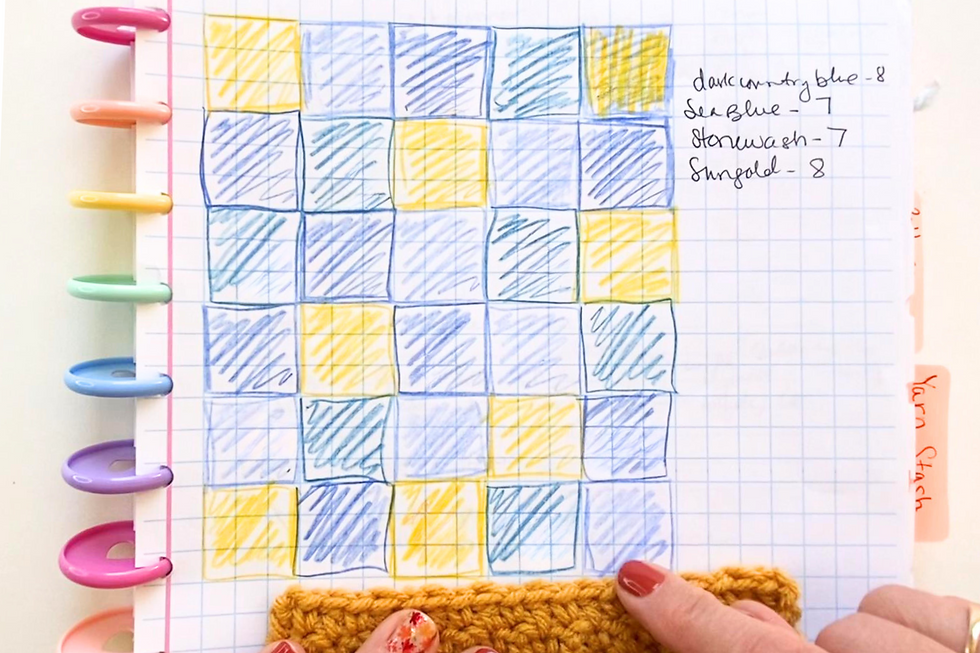 dark country blue - 8
Sea Blue - 7
Stonewash - 7
Sungold - 8
Yarn Stash